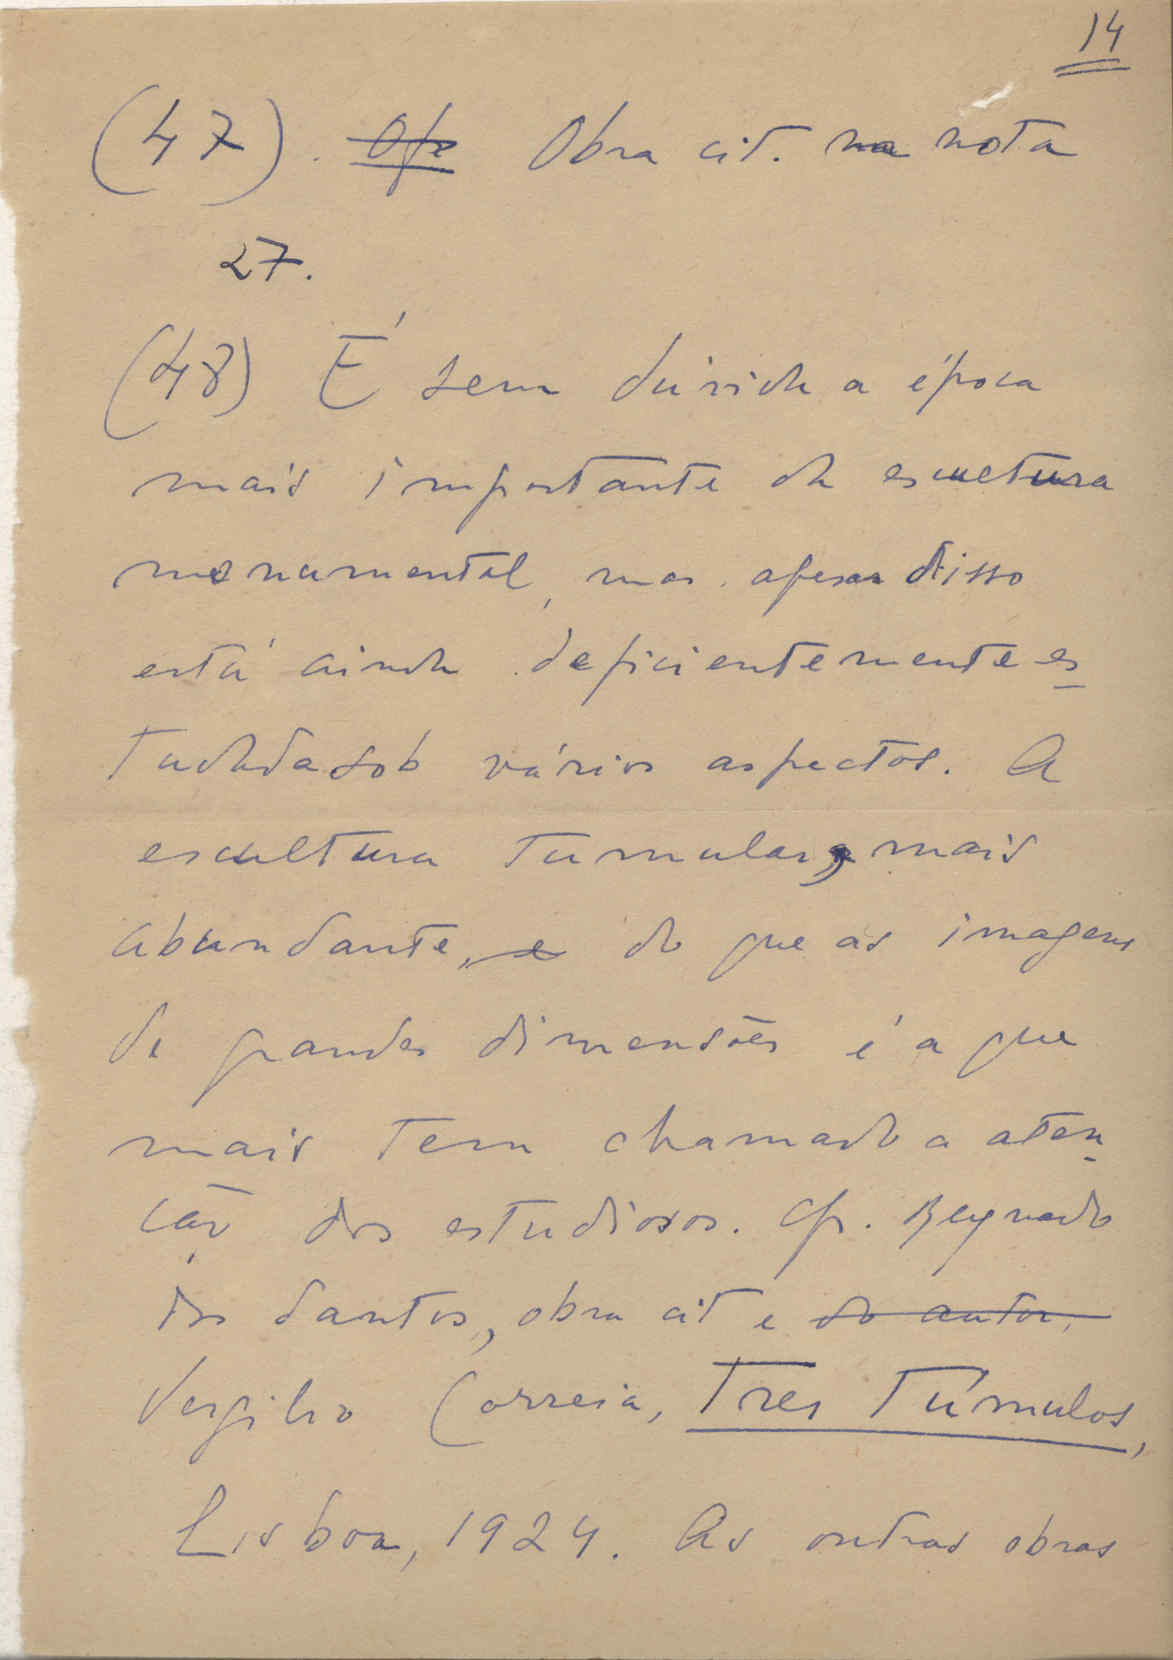 14
(47). Ofe Obra cit. na nota
27.
(48) É sem dúvida a época
mais importante da escultura
monumental, mas apesar disso
está ainda deficientemente es
tudada sob vários aspectos. A
escultura tumular, mais
abundante, e do que as imagens
de grandes dimensões é a que
mais tem chamado a aten
ção dos estudiosos. Cfr. Reynaldo
dos Santos, obra cit e do autor,
Vergilio Correia, Tres Túmulos,
Lisboa, 1924. As outras obras